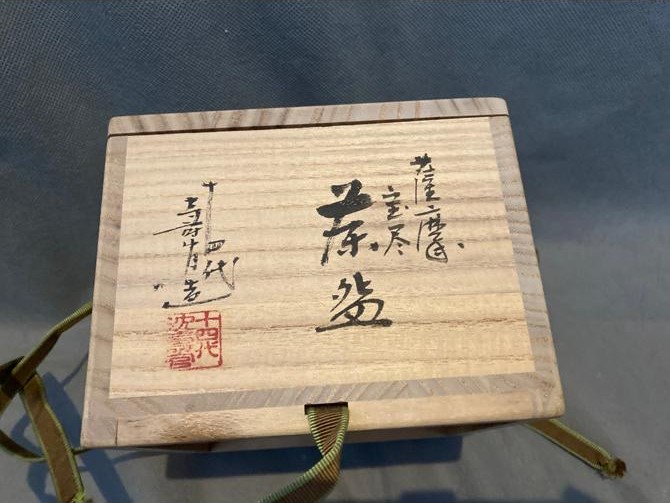 薩摩
宝尽
茶盌
十四代
壽官造
十四代
沈壽官